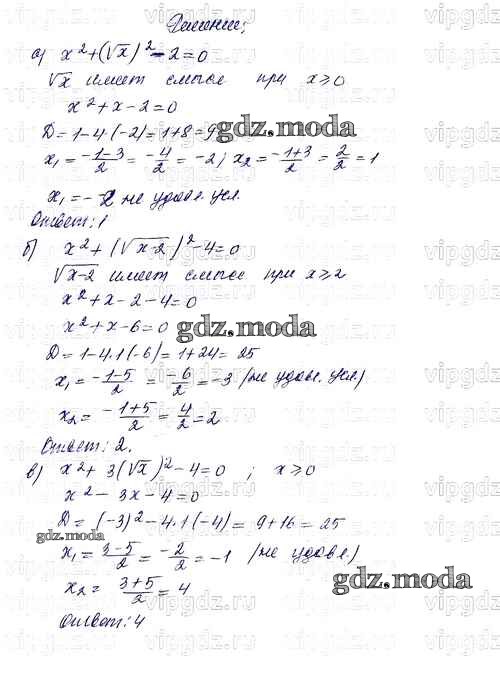 Решение:
а) x² + (√x)² − 2 = 0
√x имеет смысл при x ⩾ 0
x² + x − 2 = 0
D = 1 − 4·(−2) = 1 + 8 = 9
gdz.moda
x₁ = (−1−3)/2 = −4/2 = −2; x₂ = (−1+3)/2 = 2/2 = 1
x₁ = −2 не удовл. усл.
Ответ: 1
б) x² + (√x−2)² − 4 = 0
√x−2 имеет смысл при x ⩾ 2
x² + x − 2 − 4 = 0
x² + x − 6 = 0
gdz.moda
D = 1 − 4·1·(−6) = 1 + 24 = 25
x₁ = (−1−5)/2 = −6/2 = −3 (не удовл. усл)
x₂ = (−1+5)/2 = 4/2 = 2
Ответ: 2.
в) x² + 3(√x)² − 4 = 0 ; x ⩾ 0
x² − 3x − 4 = 0
D = (−3)² − 4·1·(−4) = 9 + 16 = 25
gdz.moda
x₁ = (3−5)/2 = −2/2 = −1 (не удовл.)
x₂ = (3+5)/2 = 4
gdz.moda
Ответ: 4
vipgdz.ru